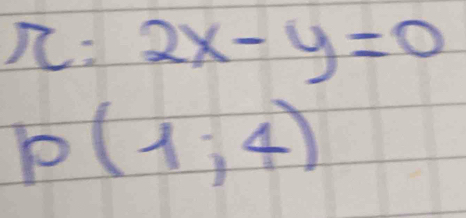 r: 2x-y=0
p(1;4)